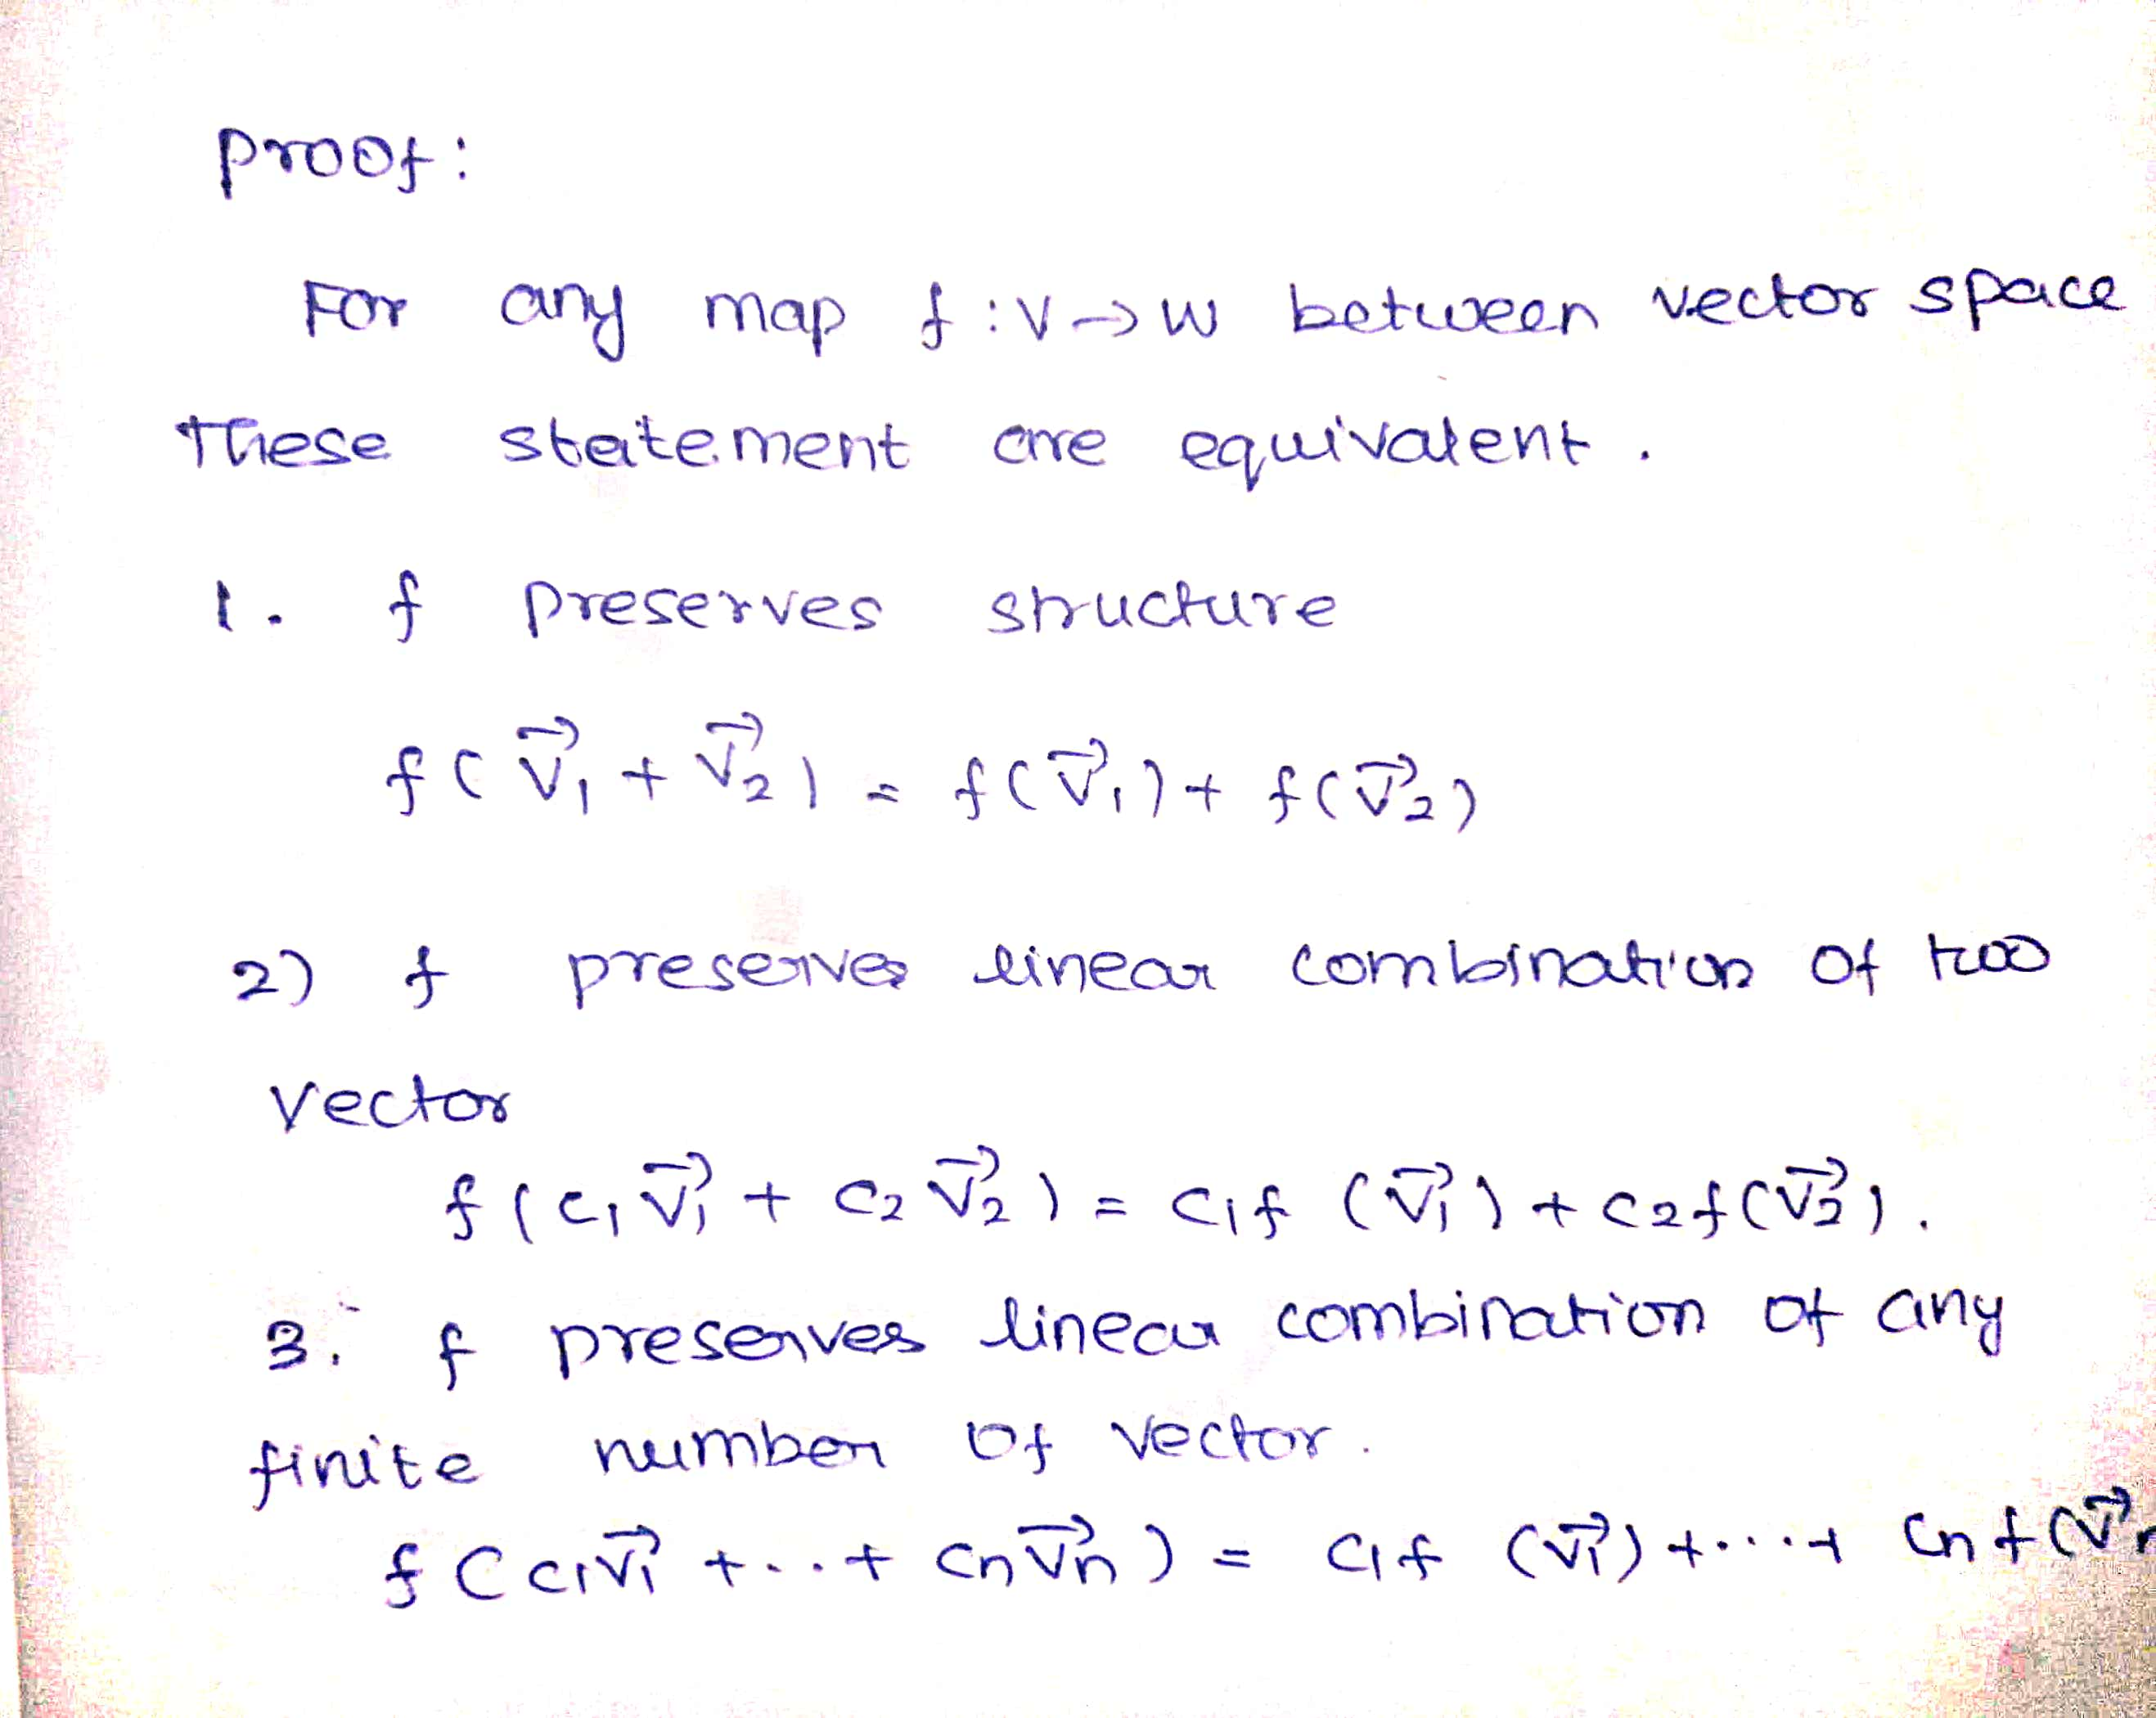 Proof:
For any map f : V → W between vector space
These statement are equivalent .
1. f preserves structure
f ( v⃗₁ + v⃗₂ ) = f(v⃗₁) + f(v⃗₂)
2) f preserves linear combination of two
vector
f ( c₁ v⃗₁ + c₂ v⃗₂ ) = c₁f (v⃗₁) + c₂f(v⃗₂) .
3. f preserves linear combination of any
finite number of vector .
f ( c₁v⃗₁ + ... + cₙv⃗ₙ ) = c₁f (v⃗₁) + .... + cₙf(v⃗ₙ